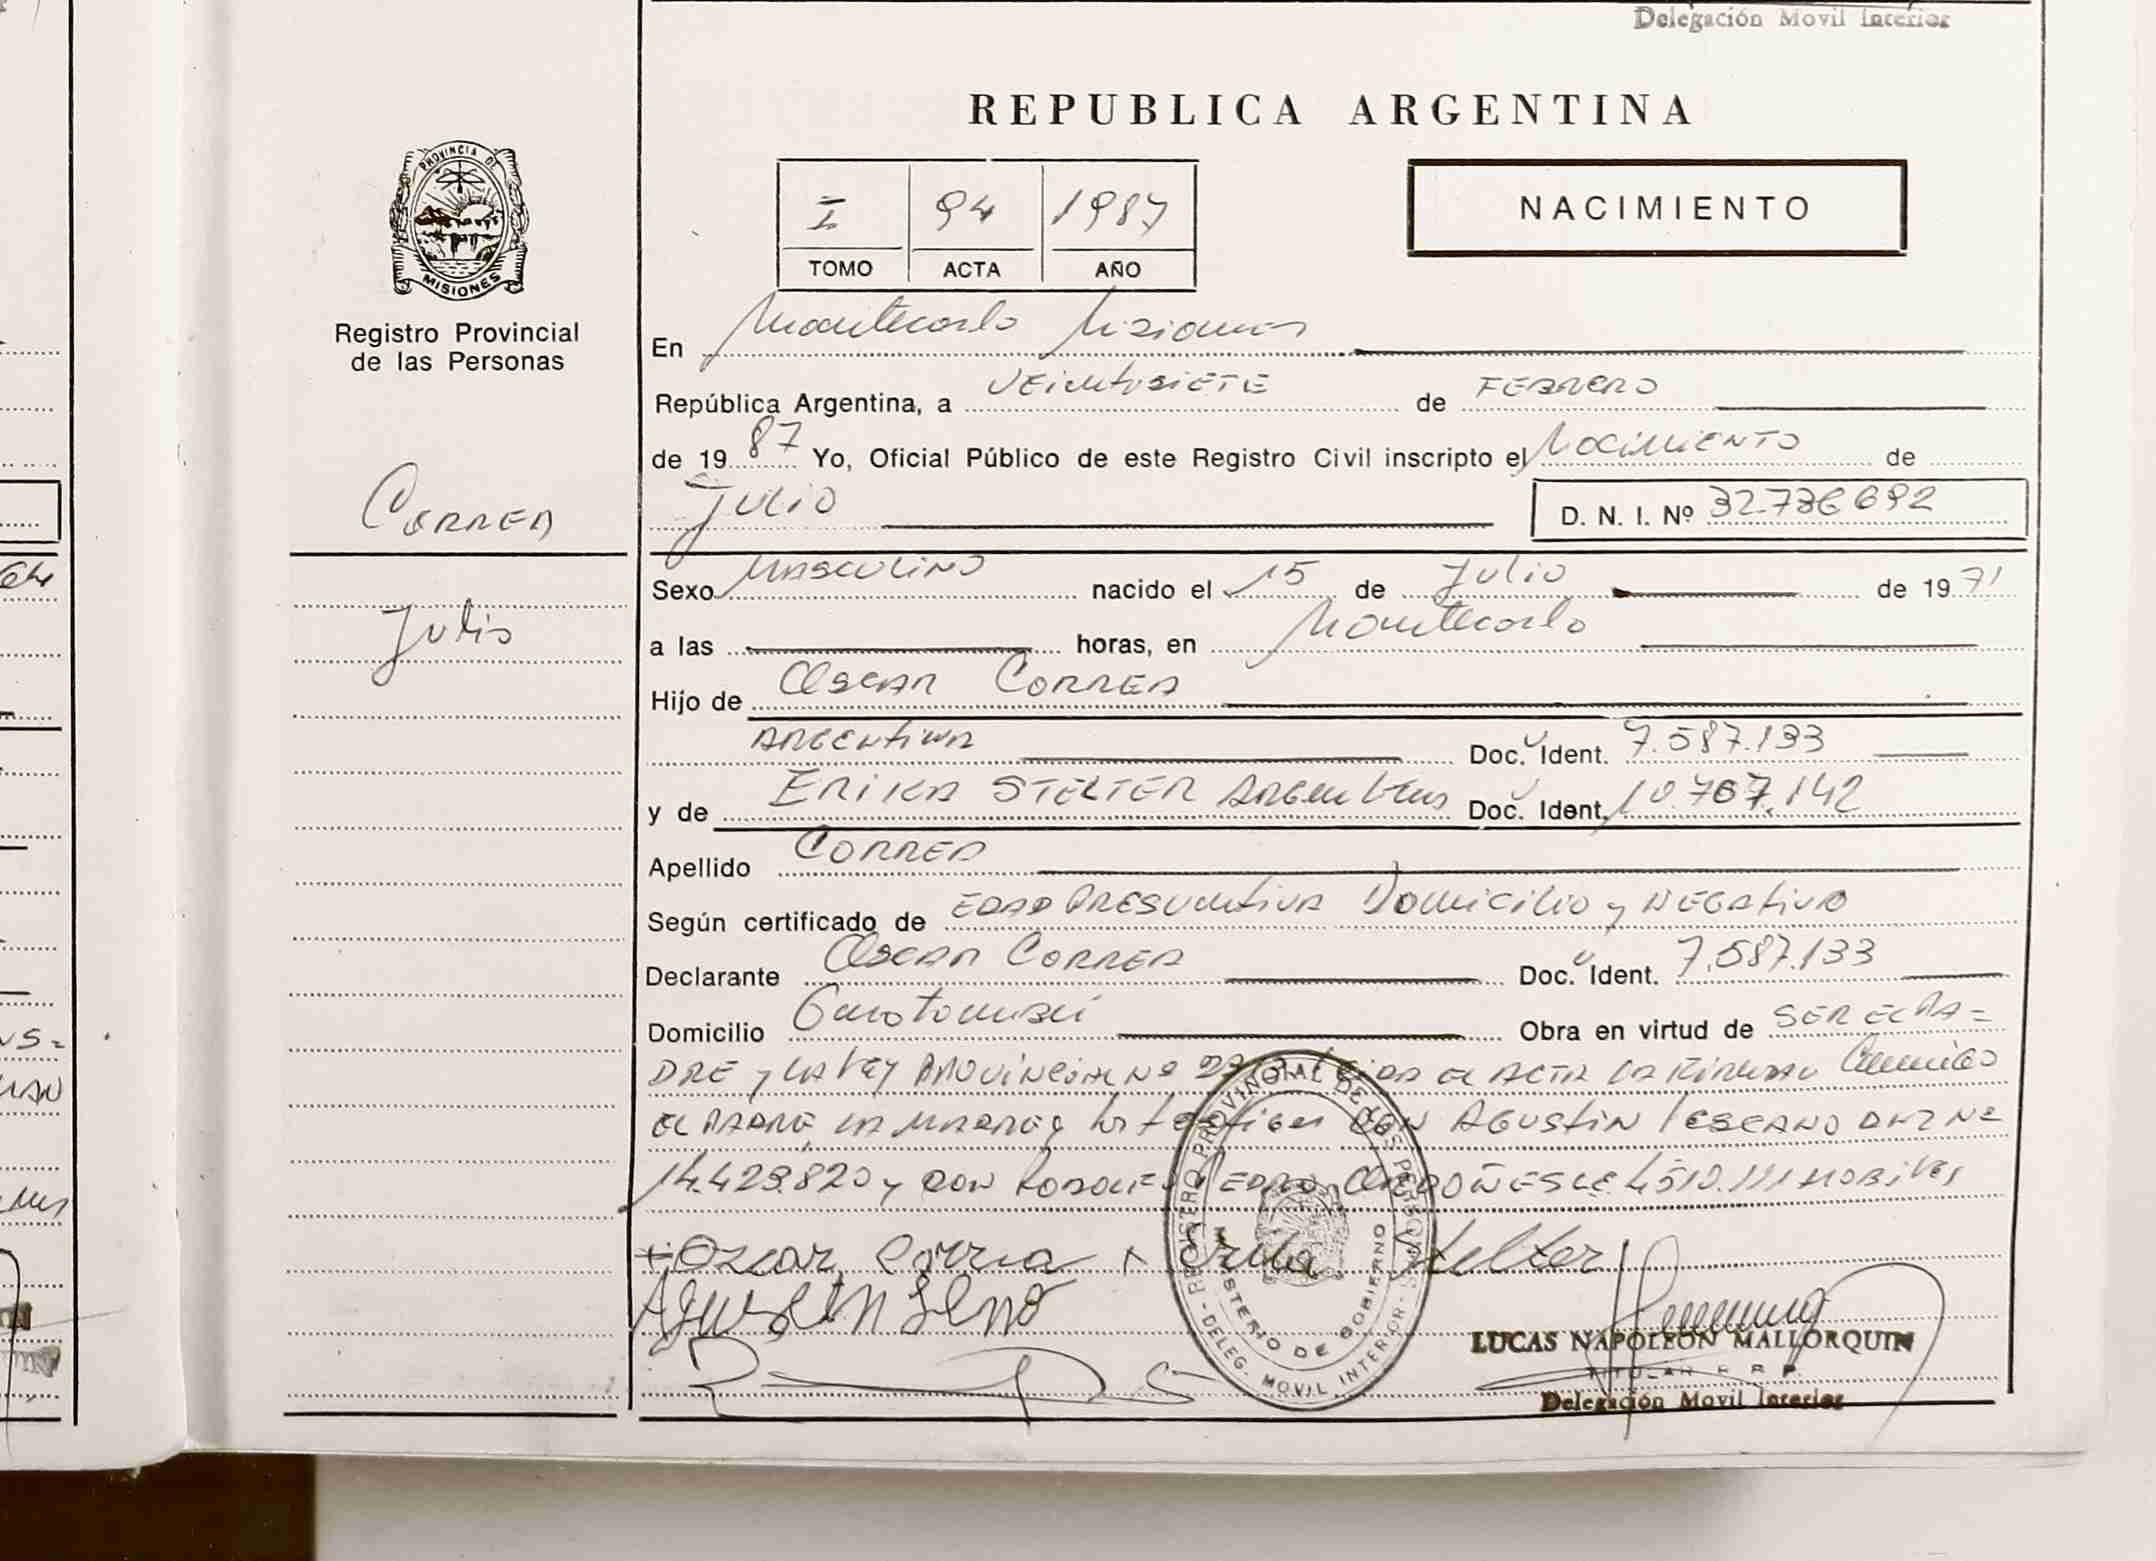 Delegación Movil Interior
REPUBLICA ARGENTINA
PROVINCIA DE
MISIONES
I 94 1987
TOMO ACTA AÑO
NACIMIENTO
Registro Provincial
de las Personas
Correa
Julio
En Montecarlo Misiones
República Argentina, a veintisiete de FEBRERO
de 1987 Yo, Oficial Público de este Registro Civil inscripto el Nacimiento de
Julio D. N. I. Nº 32.736.692
Sexo Masculino nacido el 15 de Julio de 1971
a las horas, en Montecarlo
Hijo de Oscar Correa
Argentina Doc. Ident. 7.587.133
y de Erika Stelter Argentina Doc. Ident. 10.767.142
Apellido Correa
Según certificado de Edad Presuntiva Domicilio y Negativo
Declarante Oscar Correa Doc. Ident. 7.587.133
Domicilio Obra en virtud de SER EL PA=
DRE y LA Ley Provincial Nº el acta la firman Conmigo
el Padre, la Madre y los testigos Don Agustin Lescano DNI Nº
14.429.820 y Don Pedro Ordoñes LE. 4510.111
Oscar Correa Erika Stelter
Agustin
REGISTRO PROVINCIAL DE LAS PERSONAS
MINISTERIO DE GOBIERNO
DELEG. MOVIL INTERIOR
LUCAS NAPOLEON MALLORQUIN
TITULAR R. R. P.
Delegación Movil Interior